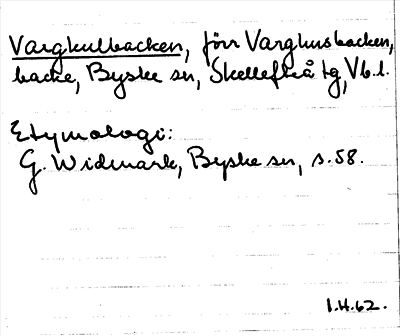 Vargkulbacken, förr Varghusbacken,
backe, Byske sn, Skellefteå tg, Vb.l.
Etymologi:
G. Widmark, Byske sn, s. 58.
I.H.62.